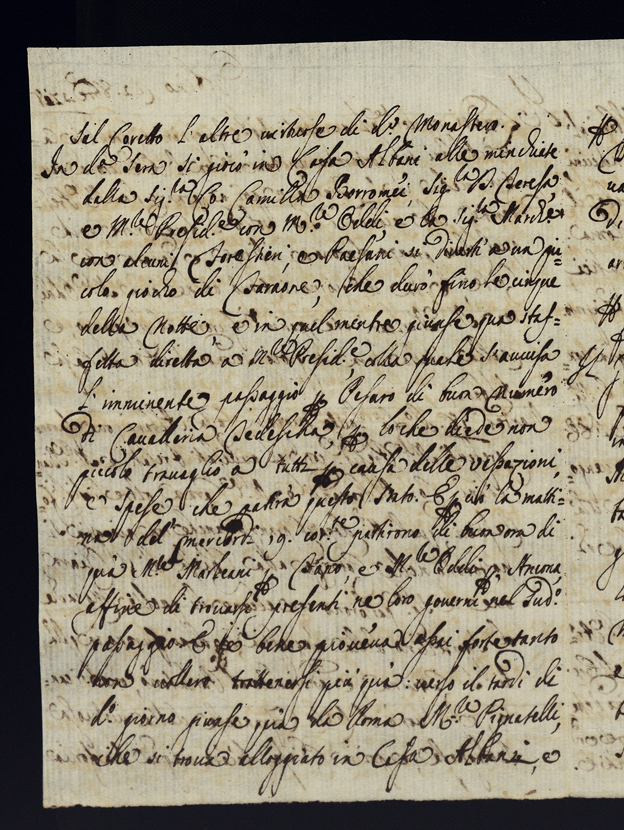 sul Coretto l'altre virtuose di d.o Monastero.
In d.a sera si giocò in Casa Albani alle minchiate
dalla Sig.ra Co: Camilla Borromei, Sig.ra D. Teresa,
e M.r Presid.e con M.r Oddi e la Sig.ra March.a
con alcuni Forestieri, e Paesani si divertì a un pi=
colo giocho di Faraone, che durò fino le cinque
della Notte, e in quel mentre giunse qua staf=
fetta diretta a M.r Presid.e colla quale s'avvisa
l'imminente passaggio p Pesaro di buon numero
di Cavalleria Tedescha, lo che diede non
piccolo travaglio a tutti p causa delle vessazioni,
e spese che patirà questo Stato. E più la matti=
na del mercordì 19. cor.te partirono di buon ora di
quà M.r Marbeani p Fano, e M.r Oddi p Ancona,
affine di trovarsi presenti ne loro governi nel sud.o
passaggio. E se bene pioveva assai forte tanto
non vollero trattenersi più quà: verso il tardi di
d.o giorno giunse quà da Roma M.r Pignatelli,
che si trova alloggiato in Casa Albani, e